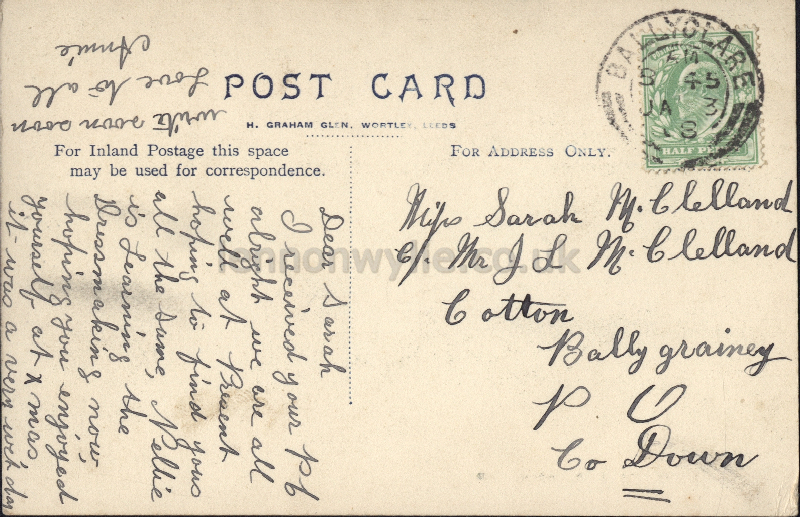 POST CARD
H. GRAHAM GLEN, WORTLEY, LEEDS
For Inland Postage this space
may be used for correspondence.
For Address Only.
BALLYCLARE
5 45
JA 3
HALF PE
Miss Sarah McClelland
c/. Mr J L McClelland
Cotton
Ballygrainey
P O
Co Down
Dear Sarah
I received your Pc
alright we are all
well at Present
hoping to find yous
all the same, Nellie
is Learning the
Dressmaking now,
hoping you enjoyed
yourself at Xmas
it was a very wet day
write soon soon
Love to all
Annie
lennonwylie.co.uk